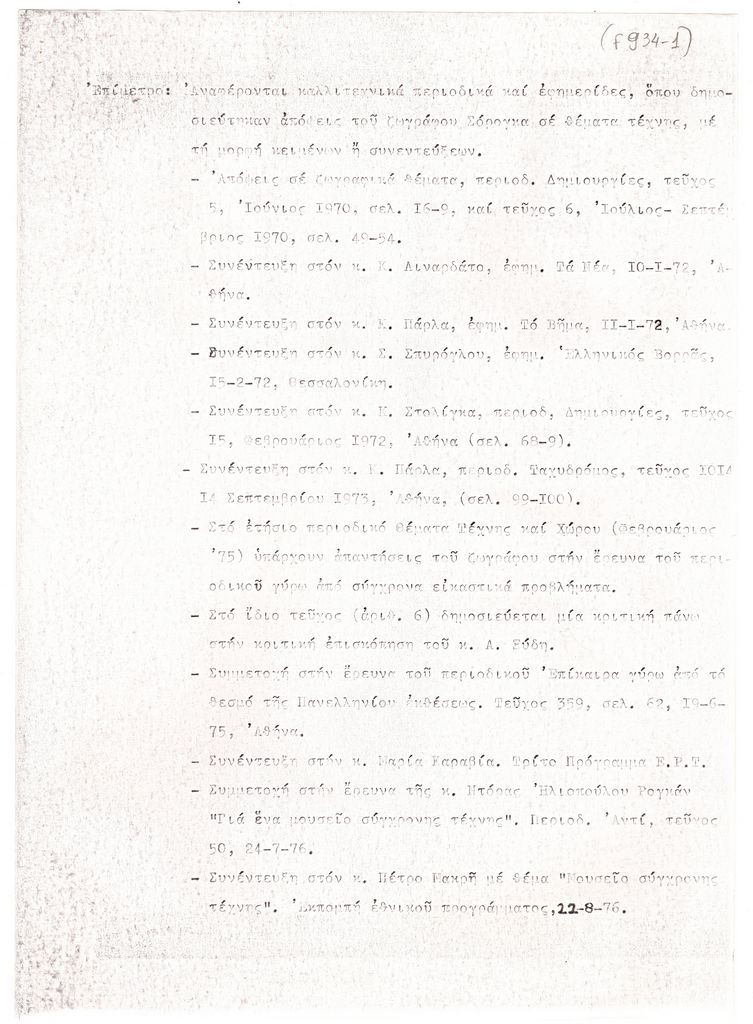 (f934-1)
'Επίμετρο: 'Αναφέρονται καλλιτεχνικά περιοδικά καί ἐφημερίδες, ὅπου δημο-
σιεύτηκαν ἀπόψεις τοῦ ζωγράφου Σόρογκα σέ θέματα τέχνης, μέ
τή μορφή κειμένων ἤ συνεντεύξεων.
- 'Απόψεις σέ ζωγραφικά θέματα, περιοδ. Δημιουργίες, τεῦχος
5, 'Ιούνιος I970, σελ. I6-9, καί τεῦχος 6, 'Ιούλιος- Σεπτέμ
βριος I970, σελ. 49-54.
- Συνέντευξη στόν κ. Κ. Λιναρδάτο, ἐφημ. Τά Νέα, IO-I-72, 'Α-
θήνα.
- Συνέντευξη στόν κ. Κ. Πάρλα, ἐφημ. Τό Βῆμα, II-I-72,'Αθήνα.
- Συνέντευξη στόν κ. Σ. Σπυρόγλου, ἐφημ. 'Ελληνικός Βορρᾶς,
I5-2-72, Θεσσαλονίκη.
- Συνέντευξη στόν κ. Κ. Στολίγκα, περιοδ, Δημιουργίες, τεῦχος
I5, Φεβρουάριος I972, 'Αθήνα (σελ. 68-9).
- Συνέντευξη στόν κ. Κ. Πάρλα, περιοδ. Ταχυδρόμος, τεῦχος IOI4
I4 Σεπτεμβρίου I973, 'Αθήνα, (σελ. 99-IOO).
- Στό ἐτήσιο περιοδικό Θέματα Τέχνης καί Χώρου (Φεβρουάριος
'75) ὑπάρχουν ἀπαντήσεις τοῦ ζωγράφου στήν ἔρευνα τοῦ περι-
οδικοῦ γύρω ἀπό σύγχρονα εἰκαστικά προβλήματα.
- Στό ἴδιο τεῦχος (ἀριθ. 6) δημοσιεύεται μία κριτική πάνω
στήν κριτική ἐπισκόπηση τοῦ κ. Α. Ξύδη.
- Συμμετοχή στήν ἔρευνα τοῦ περιοδικοῦ 'Επίκαιρα γύρω ἀπό τό
θεσμό τῆς Πανελληνίου ἐκθέσεως. Τεῦχος 359, σελ. 62, I9-6-
75, 'Αθήνα.
- Συνέντευξη στήν κ. Μαρία Καραβία. Τρίτο Πρόγραμμα Ε.Ρ.Τ.
- Συμμετοχή στήν ἔρευνα τῆς κ. Ντόρας 'Ηλιοπούλου Ρογκάν
"Γιά ἕνα μουσεῖο σύγχρονης τέχνης". Περιοδ. 'Αντί, τεῦχος
50, 24-7-76.
- Συνέντευξη στόν κ. Πέτρο Μακρῆ μέ θέμα "Μουσεῖο σύγχρονης
τέχνης". 'Εκπομπή ἐθνικοῦ προγράμματος,22-8-76.